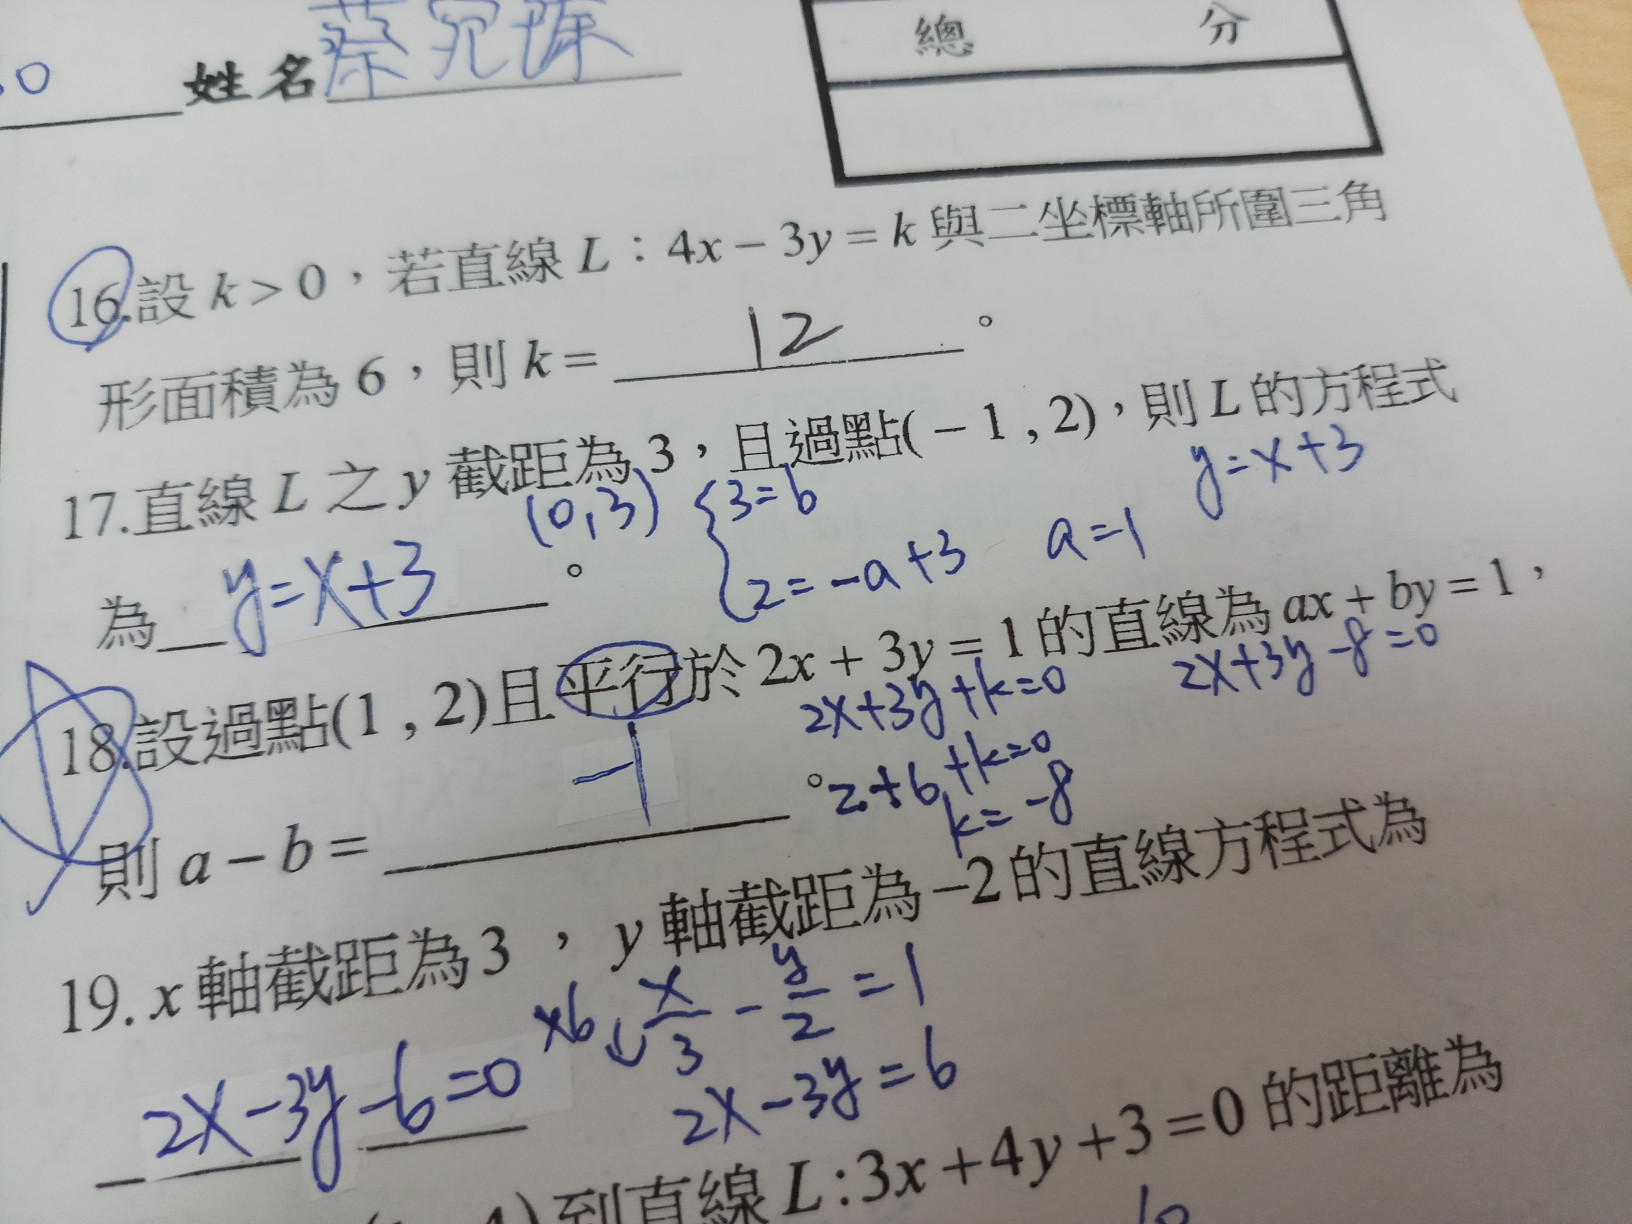 姓名 蔡宛臻
總 分
16.設 k > 0，若直線 L：4x − 3y = k 與二坐標軸所圍三角
形面積為 6，則 k = 12 。
17.直線 L 之 y 截距為 3，且過點( − 1 , 2)，則 L 的方程式
(0,3) {3=b y=x+3
2=-a+3 a=1
為 y=x+3 。
18.設過點(1 , 2)且平行於 2x + 3y = 1 的直線為 ax + by = 1，
2x+3y+k=0 2x+3y-8=0
2+6+k=0
k=-8
則 a − b = -1 。
19. x 軸截距為 3 ， y 軸截距為 −2 的直線方程式為
x6 x/3 - y/2 = 1
2x-3y=6
2x-3y-6=0
到直線 L:3x + 4y + 3 = 0 的距離為